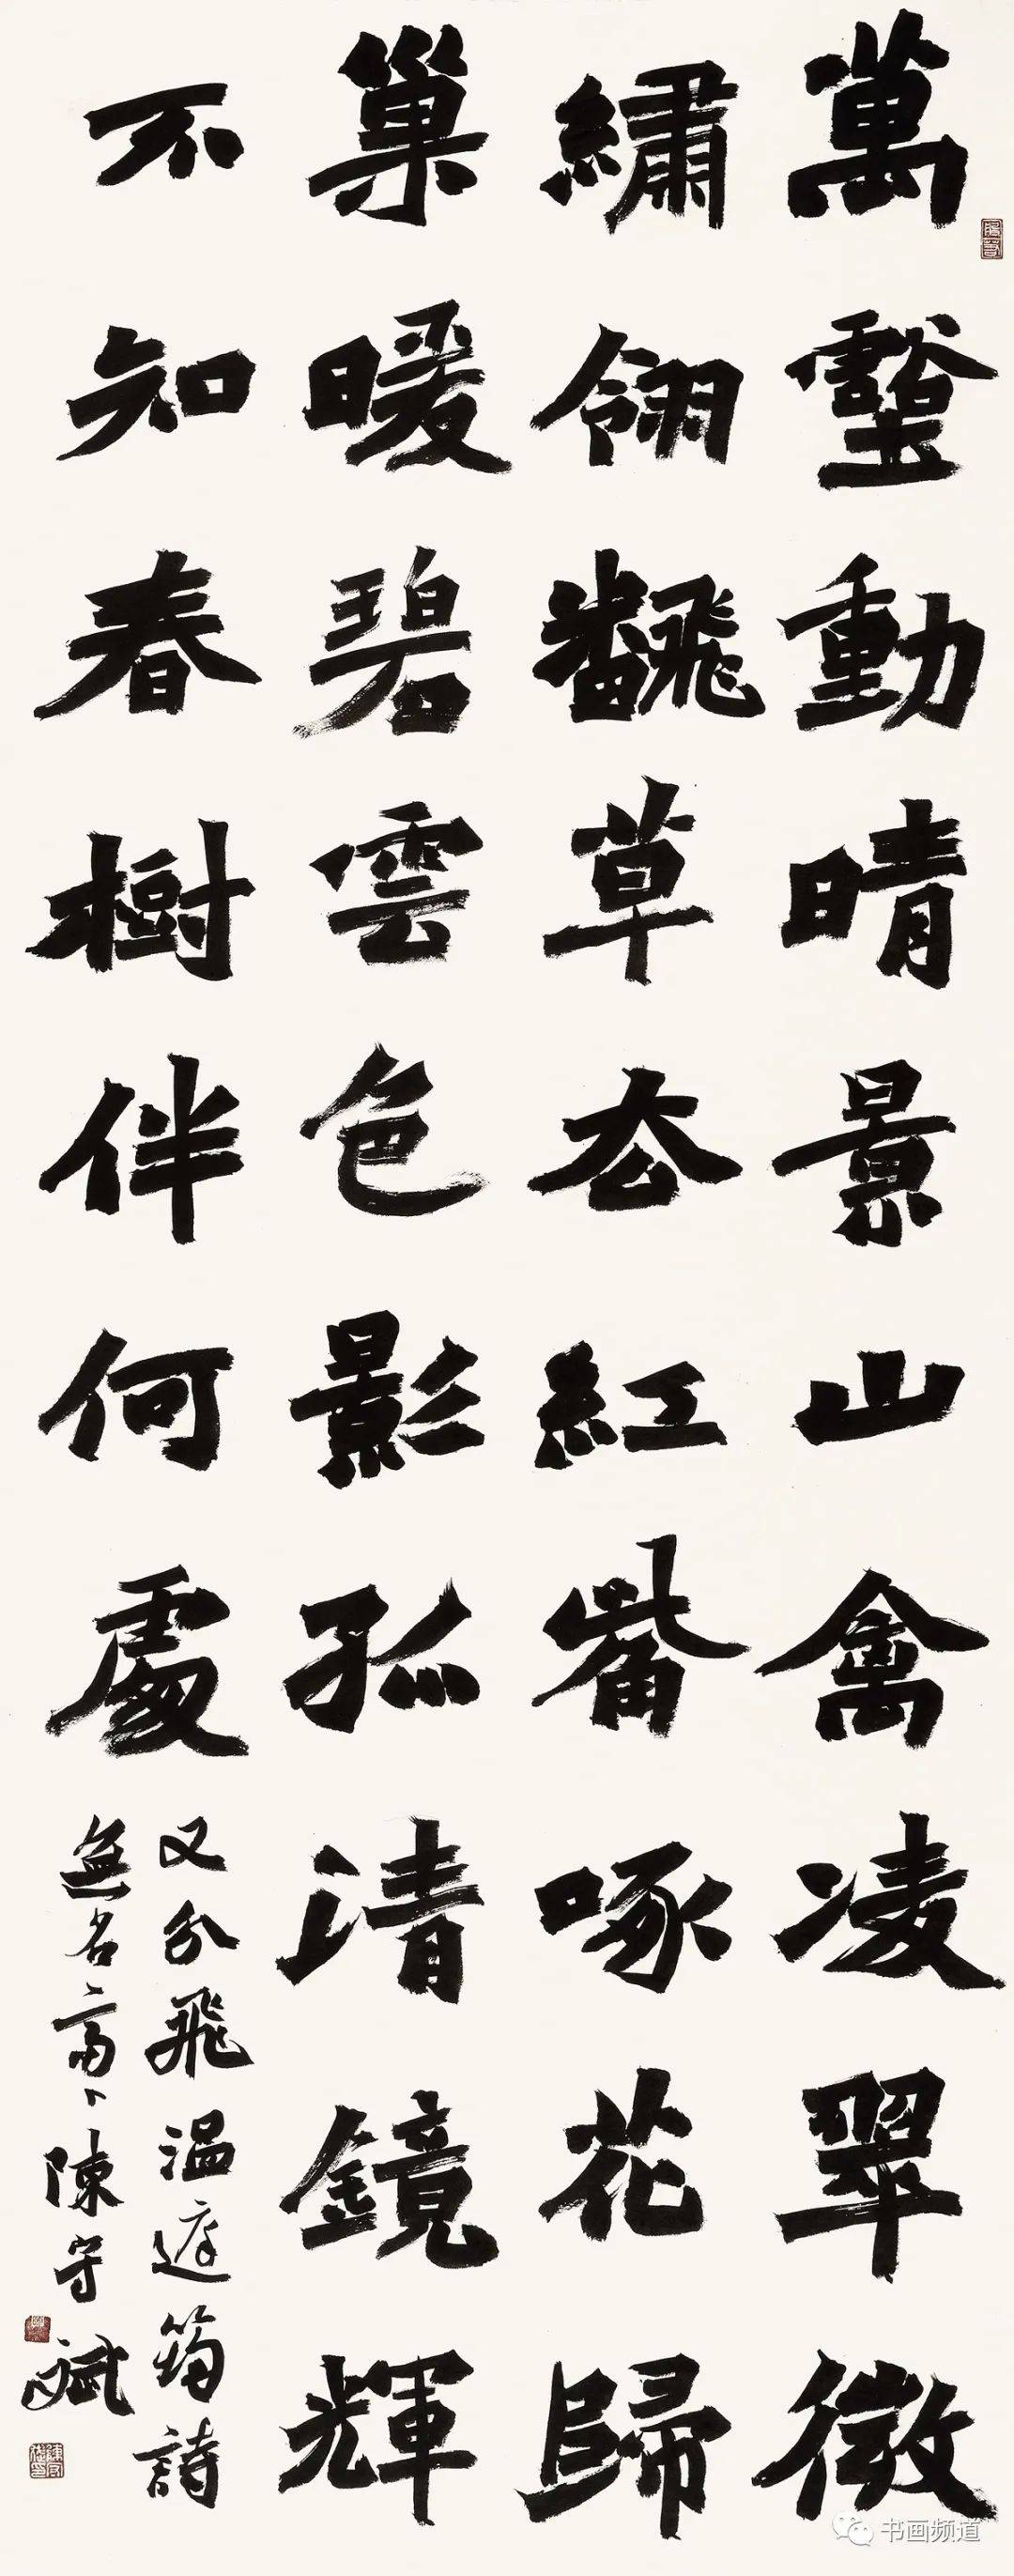 萬壑動晴景山禽凌翠微
繡翎飜草厺紅觜啄花歸
巢暖碧雲色影孤清鏡輝
不知春樹伴何處
又分飛温庭筠詩
無名齋陳斌
书画频道